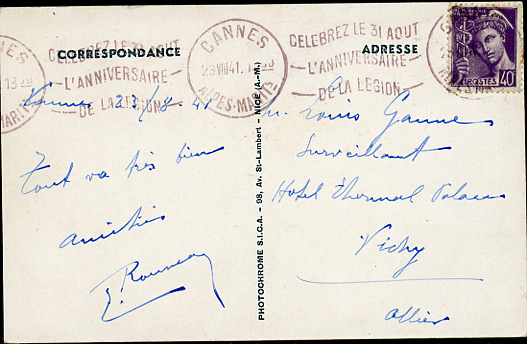 CORRESPONDANCE
ADRESSE
CELEBREZ LE 31 AOUT
L'ANNIVERSAIRE
DE LA LEGION
CANNES
23 VIII 41
ALPES-MARITES
CELEBREZ LE 31 AOUT
L'ANNIVERSAIRE
DE LA LEGION
POSTES 40
Cannes 23/8 41
Tout va très bien
Amitiés
M. Louis Ganne
Surveillant
Hotel Thermal Palace
Vichy
Allier
PHOTOCHROME S.I.C.A. - 98, Av. St-Lambert - NICE (A.-M.)